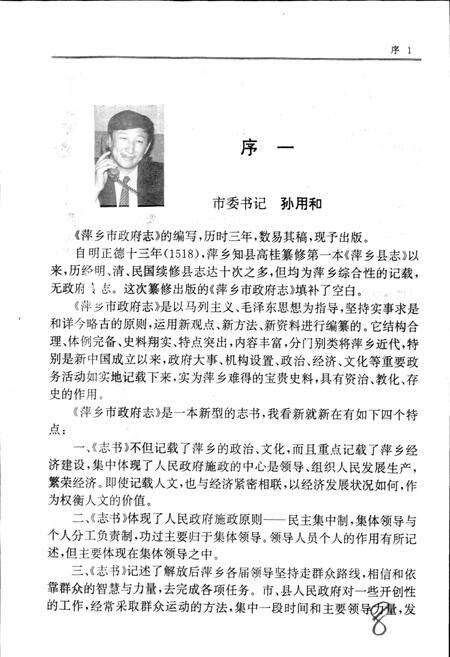 序 1
序 一
市委书记 孙用和
《萍乡市政府志》的编写，历时三年，数易其稿，现予出版。
自明正德十三年(1518)，萍乡知县高桂纂修第一本《萍乡县志》以
来，历经明、清、民国续修县志达十次之多，但均为萍乡综合性的记载，
无政府专志。这次纂修出版的《萍乡市政府志》填补了空白。
《萍乡市政府志》是以马列主义、毛泽东思想为指导，坚持实事求是
和详今略古的原则，运用新观点、新方法、新资料进行编纂的。它结构合
理、体例完备、史料翔实、特点突出，内容丰富，分门别类将萍乡近代，特
别是新中国成立以来，政府大事、机构设置、政治、经济、文化等重要政
务活动如实地记载下来，实为萍乡难得的宝贵史料，具有资治、教化、存
史的作用。
《萍乡市政府志》是一本新型的志书，我看新就新在有如下四个特
点：
一、《志书》不但记载了萍乡的政治、文化，而且重点记载了萍乡经
济建设，集中体现了人民政府施政的中心是领导、组织人民发展生产，
繁荣经济。即使记载人文，也与经济紧密相联，以经济发展状况如何，作
为权衡人文的价值。
二、《志书》体现了人民政府施政原则——民主集中制，集体领导与
个人分工负责制，功过主要归于集体领导。领导人员个人的作用有所记
述，但主要体现在集体领导之中。
三、《志书》记述了解放后萍乡各届领导坚持走群众路线，相信和依
靠群众的智慧与力量，去完成各项任务。市、县人民政府对一些开创性
的工作，经常采取群众运动的方法，集中一段时间和主要领导力量，发
8